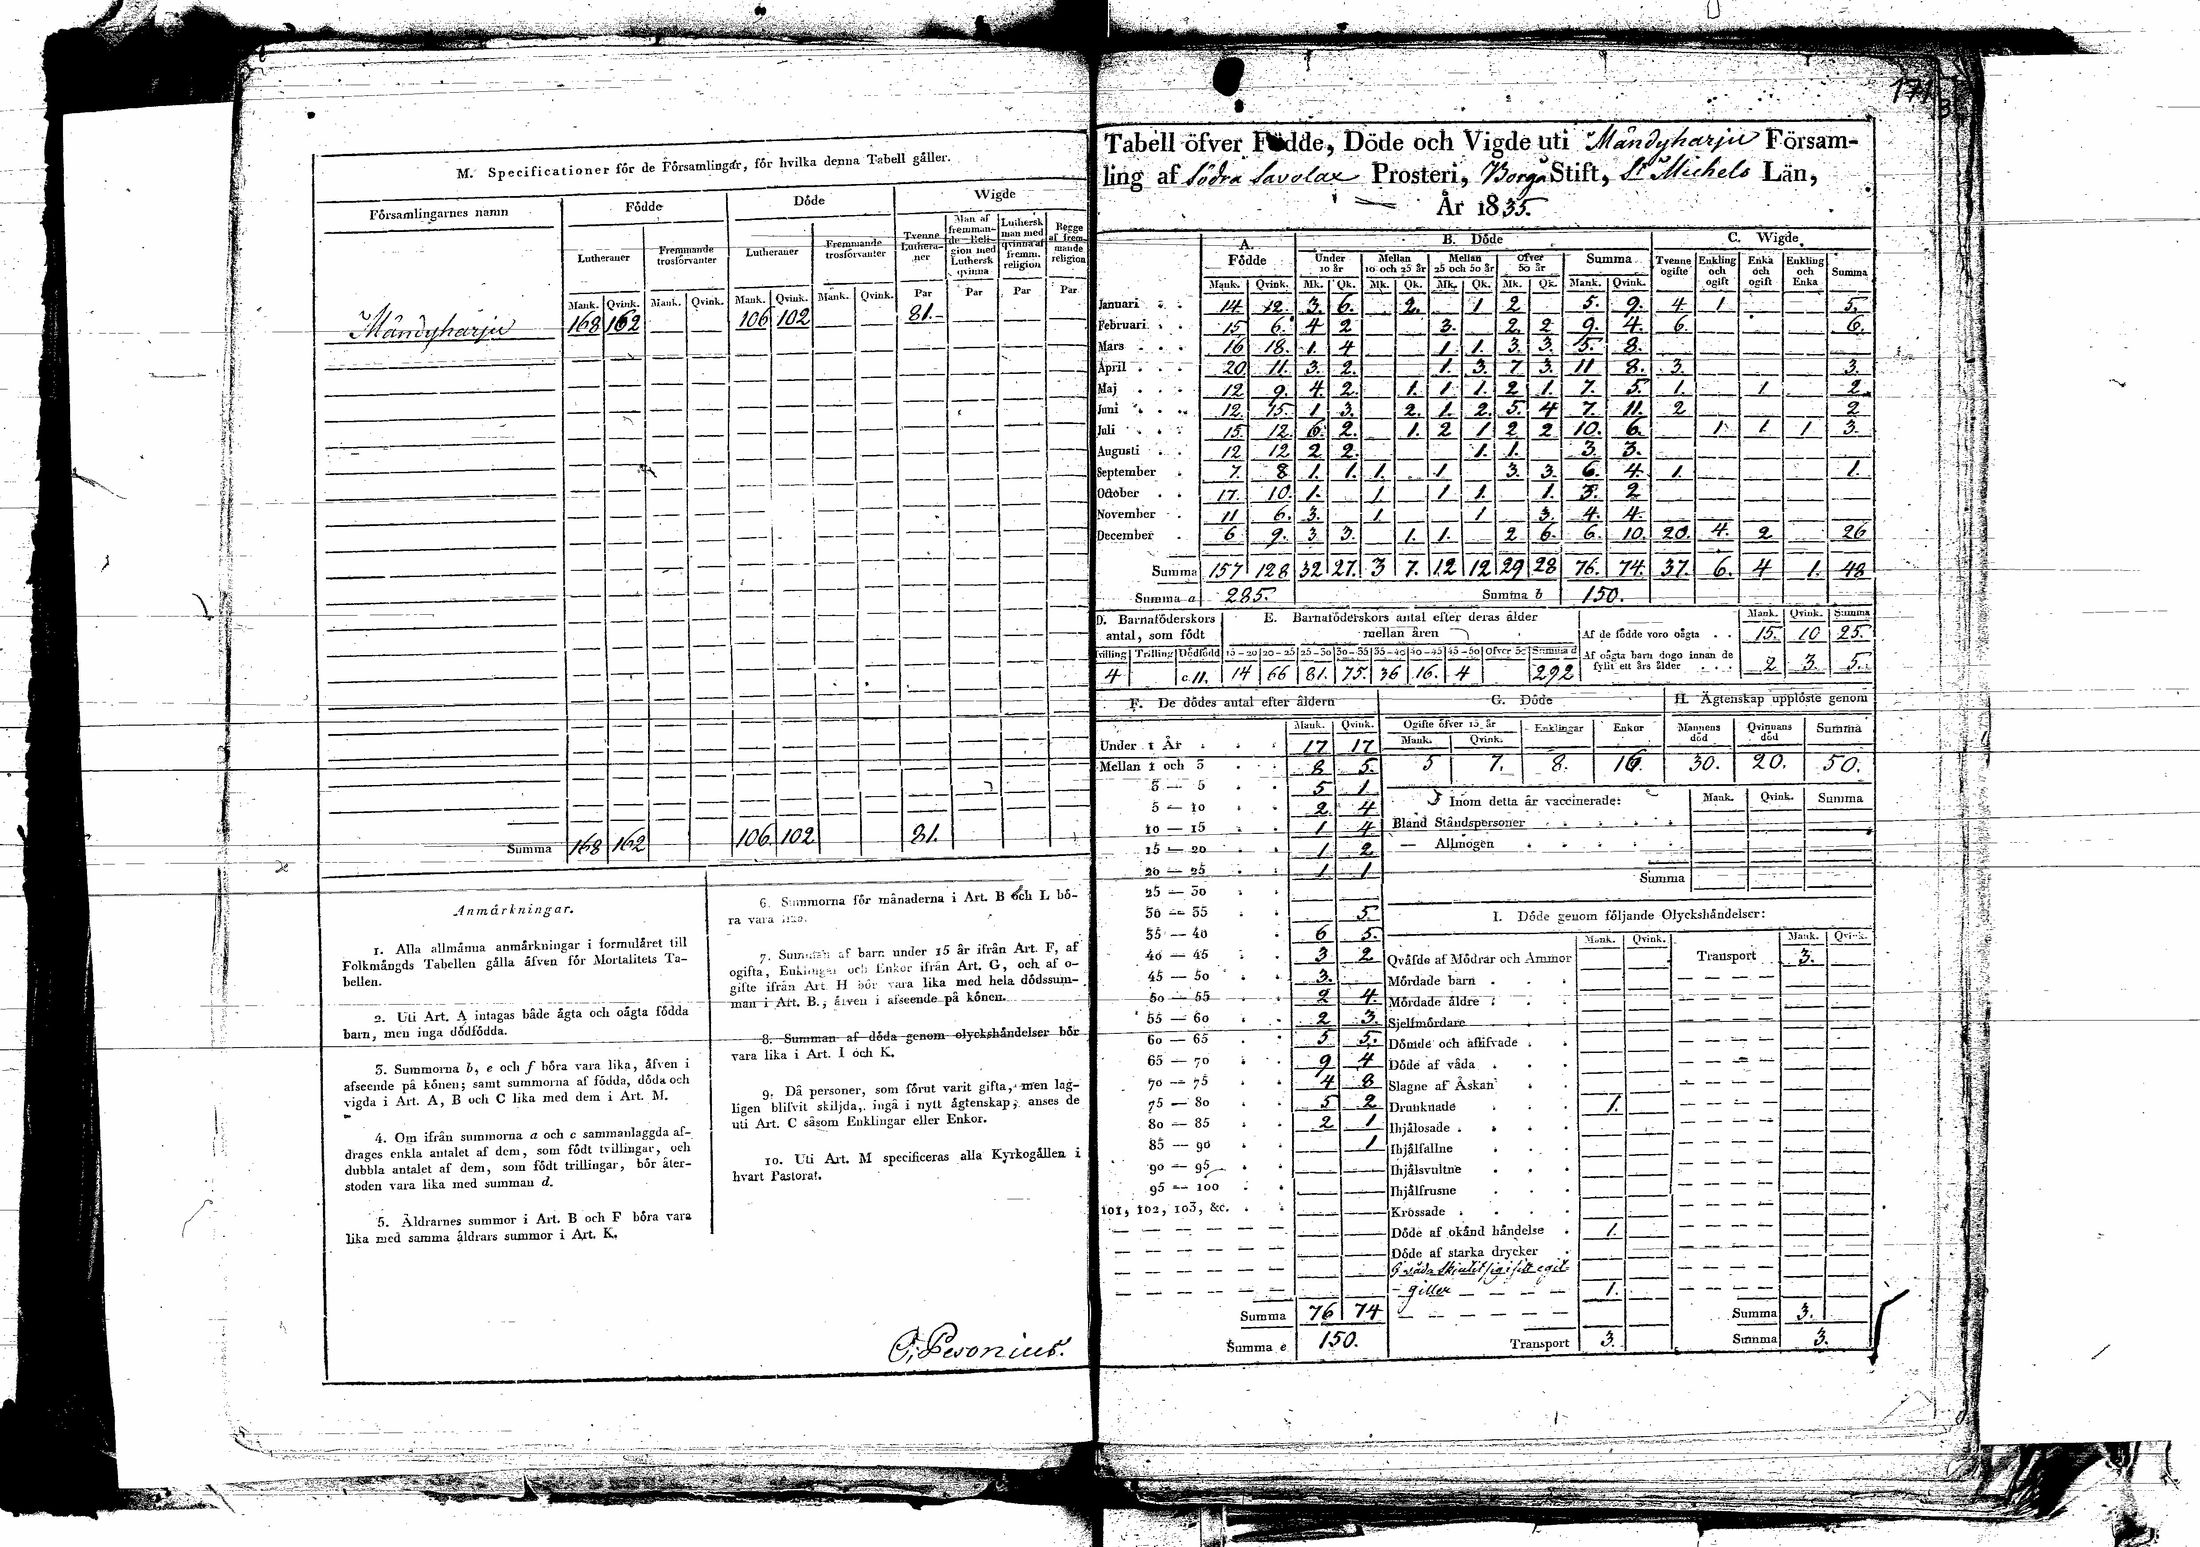 M. Specificationer för de Församlingar, för hvilka denna Tabell gäller.
Församlingarnes namn | Födde | Döde | Wigde
Lutheraner | Fremmande trosförvanter | Lutheraner | Fremmande trosförvanter | Tvenne Lutheraner | Man af fremmande Religion med Luthersk qvinna | Luthersk man med qvinna af fremm. religion | Begge af fremmande religion
Mank. | Qvink. | Mank. | Qvink. | Mank. | Qvink. | Mank. | Qvink. | Par | Par | Par | Par
Mändyharju | 168 | 162 | 106 | 102 | 81.
Summa | 168 | 162 | 106 | 102 | 81.
Anmärkningar.
1. Alla allmänna anmärkningar i formuläret till
Folkmängds Tabellen gälla äfven för Mortalitets Ta-
bellen.
2. Uti Art. A intagas både ägta och oägta födda
barn, men inga dödfödda.
3. Summorna b, e och f böra vara lika, äfven i
afseende på könen; samt summorna af födda, döda och
vigda i Art. A, B och C lika med dem i Art. M.
4. Om ifrån summorna a och c sammanlaggda af-
drages enkla antalet af dem, som födt tvillingar, och
dubbla antalet af dem, som födt trillingar, bör åter-
stoden vara lika med summan d.
5. Äldrarnes summor i Art. B och F böra vara
lika med samma äldrars summor i Art. K.
6. Summorna för månaderna i Art. B och L bö-
ra vara lika.
7. Summan af barn under 15 år ifrån Art. F, af
ogifta, Enklingar och Enkor ifrån Art. G, och af o-
gifte ifrån Art. H bör vara lika med hela dödssum-
man i Art. B., äfven i afseende på könen.
8. Summan af döda genom olyckshändelser bör
vara lika i Art. I och K.
9. Då personer, som förut varit gifta, men lag-
ligen blifvit skiljda, ingå i nytt ägtenskap; anses de
uti Art. C såsom Enklingar eller Enkor.
10. Uti Art. M specificeras alla Kyrkogällen i
hvart Pastorat.
Pesonius.
171
Tabell öfver Födde, Döde och Vigde uti Mändyharju Försam-
ling af Södra Savolax Prosteri, Borgå Stift, St Michels Län,
År 1835.
A. Födde | B. Döde | C. Wigde
Under 10 år | Mellan 10 och 25 år | Mellan 25 och 50 år | Öfver 50 år | Summa | Tvenne ogifte | Enkling och ogift | Enka och ogift | Enkling och Enka | Summa
Mank. | Qvink. | Mk. | Qk. | Mk. | Qk. | Mk. | Qk. | Mk. | Qk. | Mank. | Qvink.
Januari | 14 | 12. | 3. | 6. | 2. | 1 | 2 | 5. | 9. | 4. | 1 | 5.
Februari | 15 | 6. | 4 | 2 | 3. | 2. | 2 | 9. | 4. | 6. | 6.
Mars | 16 | 18. | 1. | 4 | 1 | 1. | 3. | 3. | 5. | 8.
April | 20 | 11. | 3. | 2. | 1. | 3. | 7 | 3. | 11 | 8. | 3. | 3.
Maj | 12 | 9. | 4. | 2. | 1. | 1. | 1. | 2 | 1. | 7. | 5. | 1. | 1 | 2
Juni | 12. | 15. | 1 | 3. | 2. | 1. | 2. | 5. | 4 | 7. | 11. | 2 | 2
Juli | 15. | 12. | 6. | 2. | 1. | 2 | 1 | 2 | 2 | 10. | 6. | 1. | 1. | 1 | 3.
Augusti | 12 | 12 | 2 | 2. | 1. | 1. | 3. | 3.
September | 7. | 8 | 1. | 1. | 1. | 1. | 3. | 3. | 6. | 4. | 1. | 1.
October | 17. | 10. | 1. | 1 | 1 | 1. | 1. | 3. | 2
November | 11 | 6. | 3. | 1 | 1 | 3. | 4. | 4.
December | 6 | 9. | 3 | 3. | 1. | 1. | 2 | 6. | 6. | 10. | 20. | 4. | 2 | 26
Summa | 157 | 128 | 32 | 27. | 3 | 7. | 12 | 12 | 29 | 28 | 76. | 74. | 37. | 6. | 4 | 1. | 48
Summa a | 285. | Summa b | 150.
D. Barnaföderskors antal, som födt | E. Barnaföderskors antal efter deras ålder mellan åren | Mank. | Qvink. | Summa
Tvilling | Trilling | Dödfödd | 15-20 | 20-25 | 25-30 | 30-35 | 35-40 | 40-45 | 45-50 | Öfver 50 | Summa d
4 | c.11. | 14 | 66 | 81. | 75. | 36 | 16. | 4 | 292
Af de födde voro oägta | 15. | 10 | 25.
Af oägta barn dogo innan de fyllt ett års ålder | 2 | 3. | 5.
F. De dödes antal efter åldern | G. Döde | H. Ägtenskap upplöste genom
Mank. | Qvink. | Ogifte öfver 15 år | Enklingar | Enkor | Mannens död | Qvinnans död | Summa
Mank. | Qvink.
5 | 7. | 8. | 16. | 30. | 20. | 50.
Under 1 År | 17 | 17
Mellan 1 och 3 | 8 | 5.
3 — 5 | 5 | 1
5 — 10 | 2 | 4
10 — 15 | 1 | 4
15 — 20 | 1 | 2
20 — 25 | 1 | 1
25 — 30
30 — 35 | 5.
35 — 40 | 6 | 5.
40 — 45 | 3 | 2
45 — 50 | 3.
50 — 55 | 2 | 4.
55 — 60 | 2 | 3.
60 — 65 | 5 | 5.
65 — 70 | 9 | 4
70 — 75 | 4 | 8
75 — 80 | 5 | 2
80 — 85 | 2 | 1
85 — 90 | 1
90 — 95
95 — 100
101, 102, 103, &c.
Summa | 76 | 74
Summa e | 150.
Inom detta år vaccinerade: | Mank. | Qvink. | Summa
Bland Ståndspersoner
— Allmogen
Summa
I. Döde genom följande Olyckshändelser:
Mank. | Qvink. | Mank. | Qvink.
Qväfde af Mödrar och Ammor | Transport | 3.
Mördade barn
Mördade äldre
Sjelfmördare
Dömde och aflifvade
Döde af våda
Slagne af Åskan
Drunknade | 1.
Ihjälosade
Ihjälfallne
Ihjälsvultne
Ihjälfrusne
Krossade
Döde af okänd händelse | 1.
Döde af starka drycker
giller | 1.
Summa | 3.
Transport | 3. | Summa | 3.